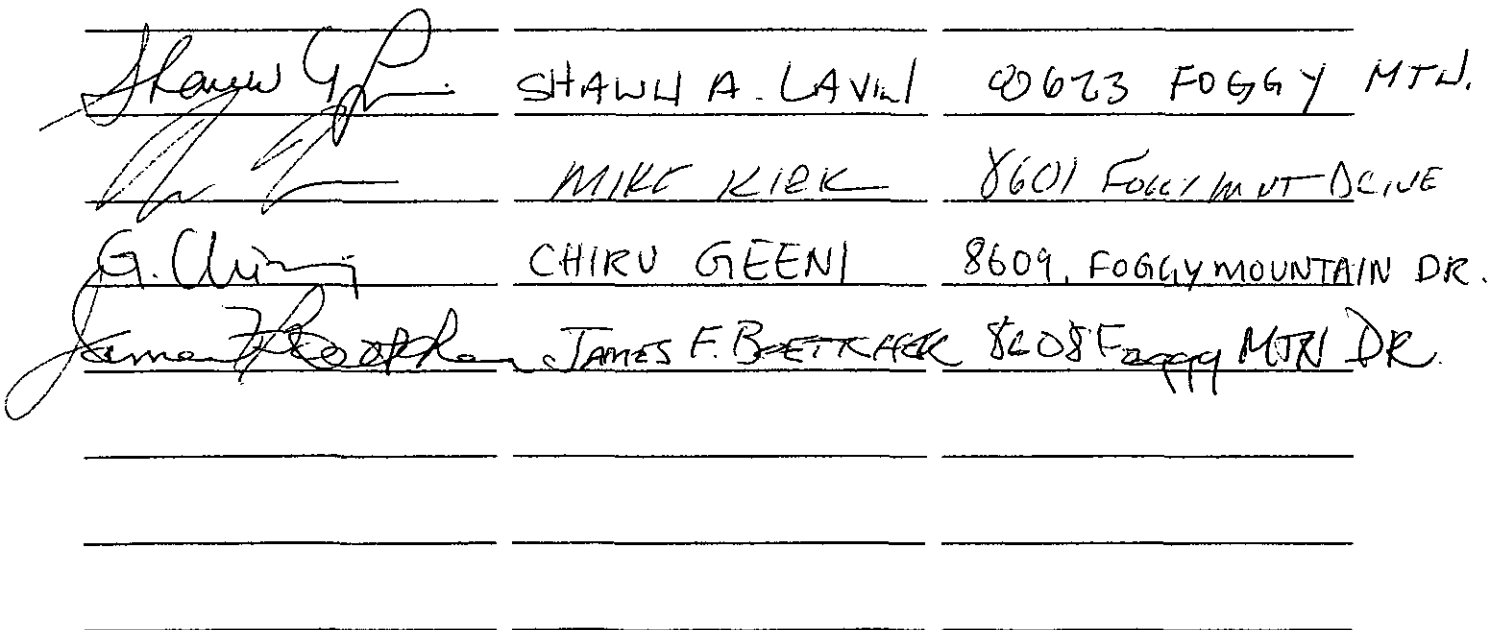 Shawn SHAWN A. LAVIN 8623 FOGGY MTN.
MIKE KIRK 8601 FOGGY MNT DRIVE
G. Chiru CHIRU GEENI 8609, FOGGY MOUNTAIN DR.
James F. JAMES F. 8608 Foggy MTN DR.